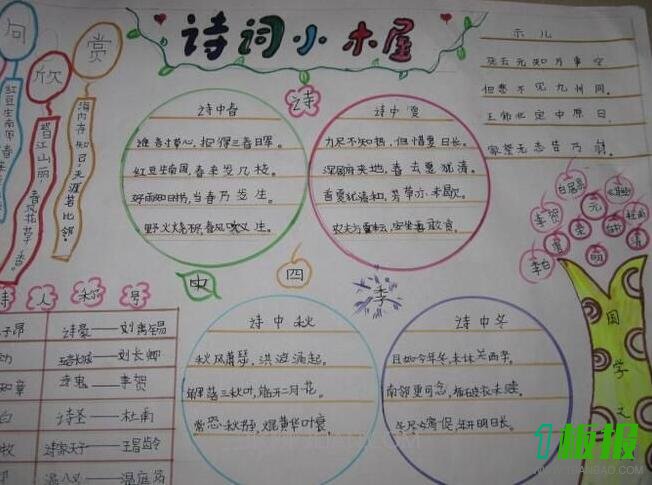 诗词小木屋
句
欣
赏
红豆生南国
迟日江山丽，
春风花草香。
海内存知己，天涯若比邻。
诗
中
四
季
诗中春
谁言寸草心，报得三春晖。
红豆生南国，春来发几枝。
好雨知时节，当春乃发生。
野火烧不尽，春风吹又生。
诗中夏
力尽不知热，但惜夏日长。
深居俯夹地，春去夏犹清。
首夏犹清和，芳草亦未歇。
诗中秋
秋风萧瑟，洪波涌起。
常恐秋节至，焜黄华叶衰
诗中冬
且如今年冬，未休关西卒。
南邻更可念，
示儿
死去元知万事空
但悲不见九州同。
王师北定中原日
家祭无忘告乃翁。
白居易
李贺
元
杜甫
李白
清
明
国学文
诗人称号
子昂
诗豪——刘禹锡
五言长城——刘长卿
知章
诗鬼——李贺
白
诗圣——杜甫
牧
诗家天子——王昌龄
温八叉——温庭筠
1板报
WWW.1BANBAO.COM